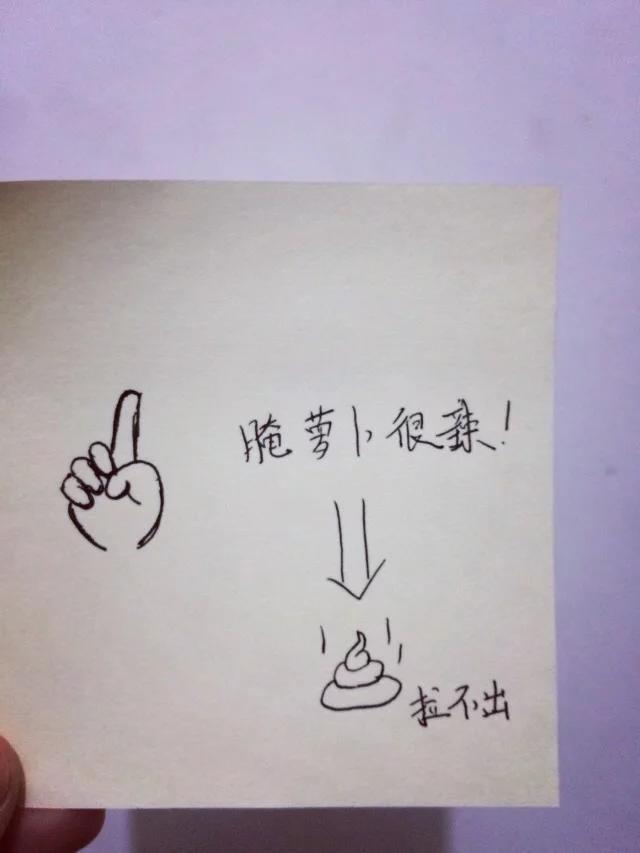 腌萝卜很辣!
拉不出